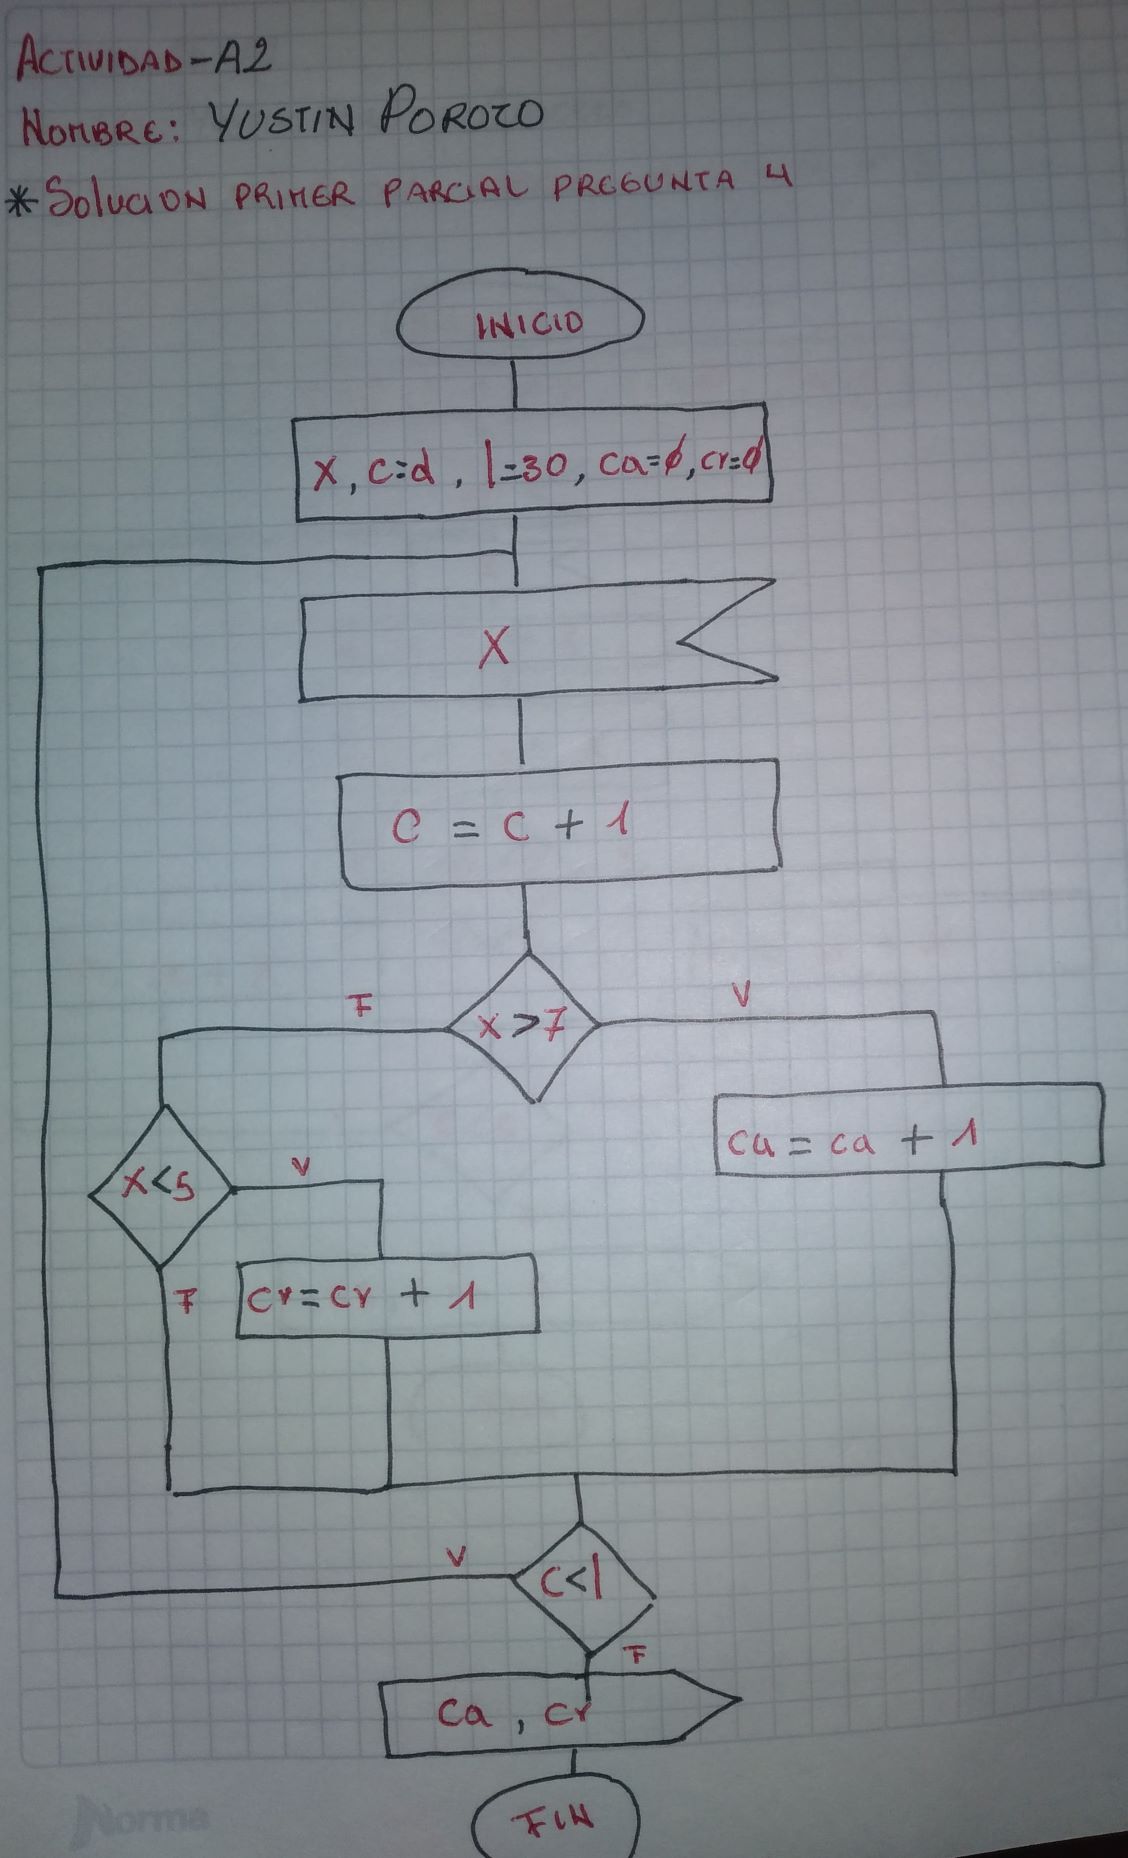 ACTIVIDAD-A2
NOMBRE: YUSTIN POROZO
* SOLUCION PRIMER PARCIAL PREGUNTA 4
INICIO
X, C=d, l=30, ca=ϕ, cr=ϕ
X
C = C + 1
F
X > 7
V
X<5
V
ca = ca + 1
F
cr = cr + 1
V
C<l
F
ca, cr
FIN
Norma